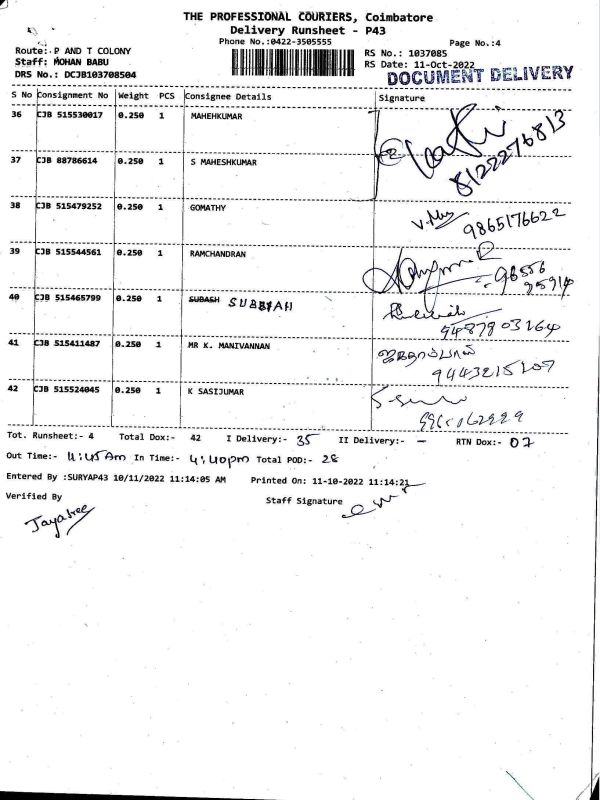 THE PROFESSIONAL COURIERS, Coimbatore
Delivery Runsheet - P43
Phone No.:0422-3505555
Page No.:4
Route: P AND T COLONY
RS No.: 1037085
Staff: MOHAN BABU
RS Date: 11-Oct-2022
DRS No.: DCJB103708504
DOCUMENT DELIVERY
S No Consignment No Weight PCS Consignee Details Signature
36 CJB 515530017 0.250 1 MAHEHKUMAR
8122276813
37 CJB 88786614 0.250 1 S MAHESHKUMAR
38 CJB 515479252 0.250 1 GOMATHY
9865176622
39 CJB 515544561 0.250 1 RAMCHANDRAN
40 CJB 515465799 0.250 1 SUBASH SUBBIAH
9487803164
41 CJB 515411487 0.250 1 MR K. MANIVANNAN
42 CJB 515524045 0.250 1 K SASIJUMAR
Tot. Runsheet:- 4 Total Dox:- 42 I Delivery:- 35 II Delivery:- - RTN Dox:- 07
Out Time:- 11:45 Am In Time:- 4:40pm Total POD:- 28
Entered By :SURYAP43 10/11/2022 11:14:05 AM Printed On: 11-10-2022 11:14:21
Verified By Staff Signature
Jayasree